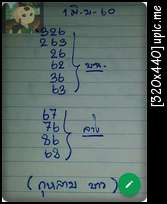 1 มิ.ย-60
326
263
26
62
36
63
} บน.
67
76
86
68
} ล่าง
(กุหลาบ ขาว)
[320x440] upic.me